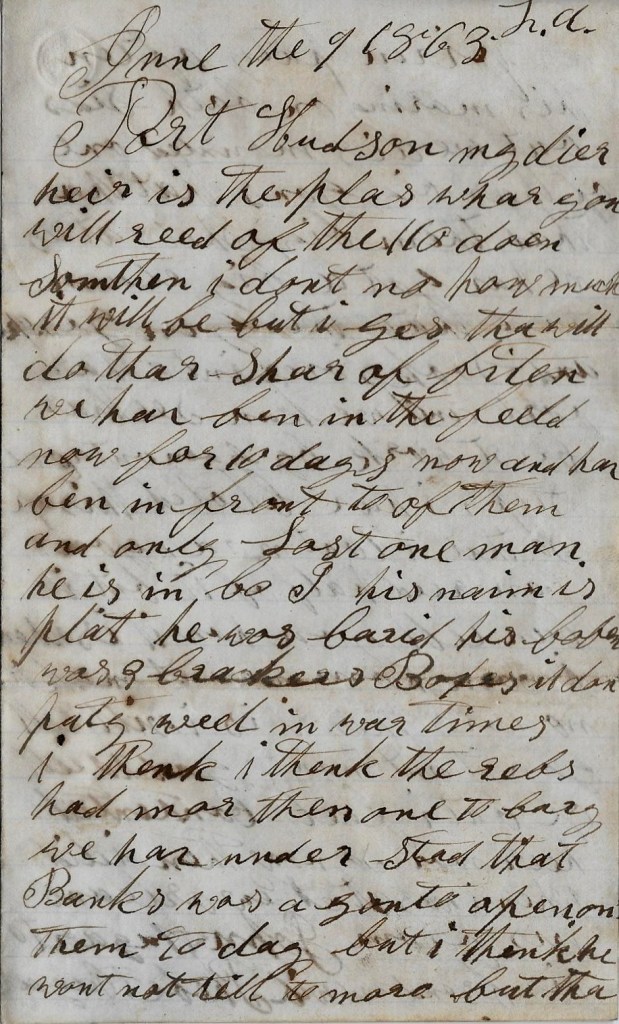 June the 9 1863
Port Hudson my dier
heir is the plas whar you
will reed of the 116 doen
Somthen i dont no how much
it will be but i ges tha will
do thar shar of fiten
we har ben in the feeld
now for 10 days now and har
ben in front to of them
and only Lost one man
he is in, co I his naim is
plat he was barid his
was a brakers it don
paty weel in war times
i thenk i thenk the rebs
had mor then one to bary
we har under stod that
Banks was a gonto open on
them to day but i thenk he
wont not till to moro but tha